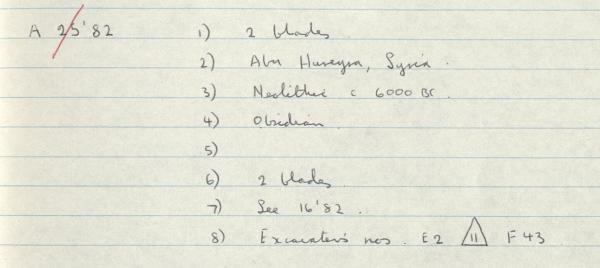 A 25'82 1) 2 blades.
2) Abu Hureyra, Syria.
3) Neolithic c 6000 BC.
4) Obsidian.
5)
6) 2 blades.
7) See 16'82.
8) Excavator's nos. E2 11 F43